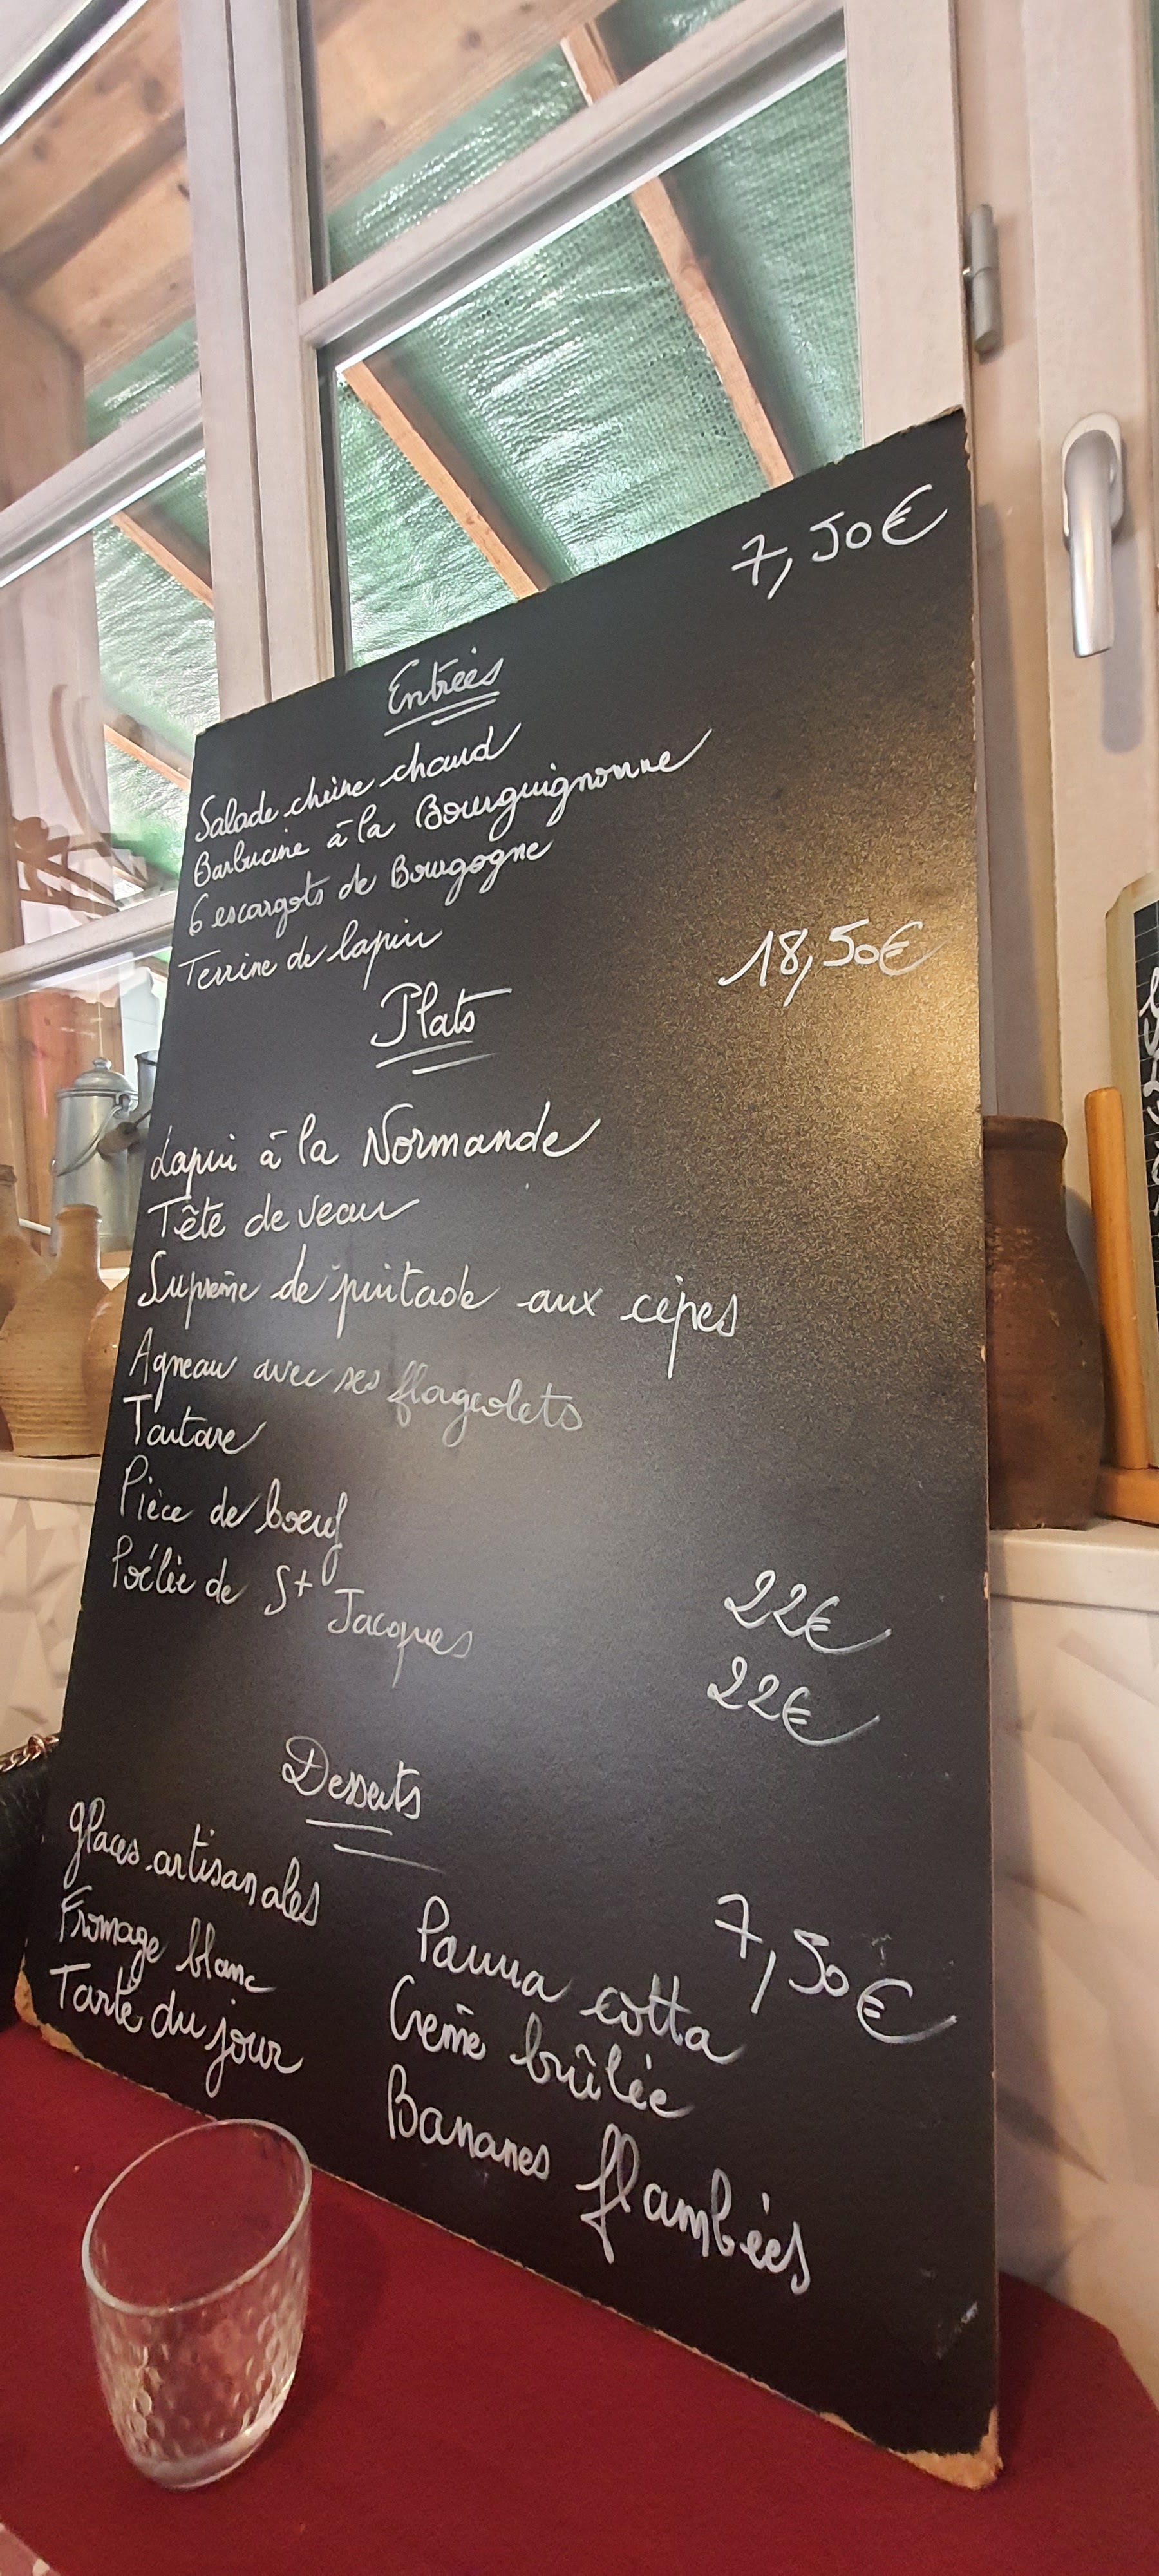 Entrées 7,50€
Salade chèvre chaud
Barbucine à la Bourguignonne
6 escargots de Bourgogne
Terrine de lapin
Plats 18,50€
Lapin à la Normande
Tête de veau
Suprême de pintade aux cèpes
Agneau avec ses flageolets
Tartare
Pièce de boeuf 22€
Poélée de St Jacques 22€
Desserts 7,50€
glaces artisanales
Fromage blanc
Tarte du jour
Panna cotta
Crème brûlée
Bananes flambées